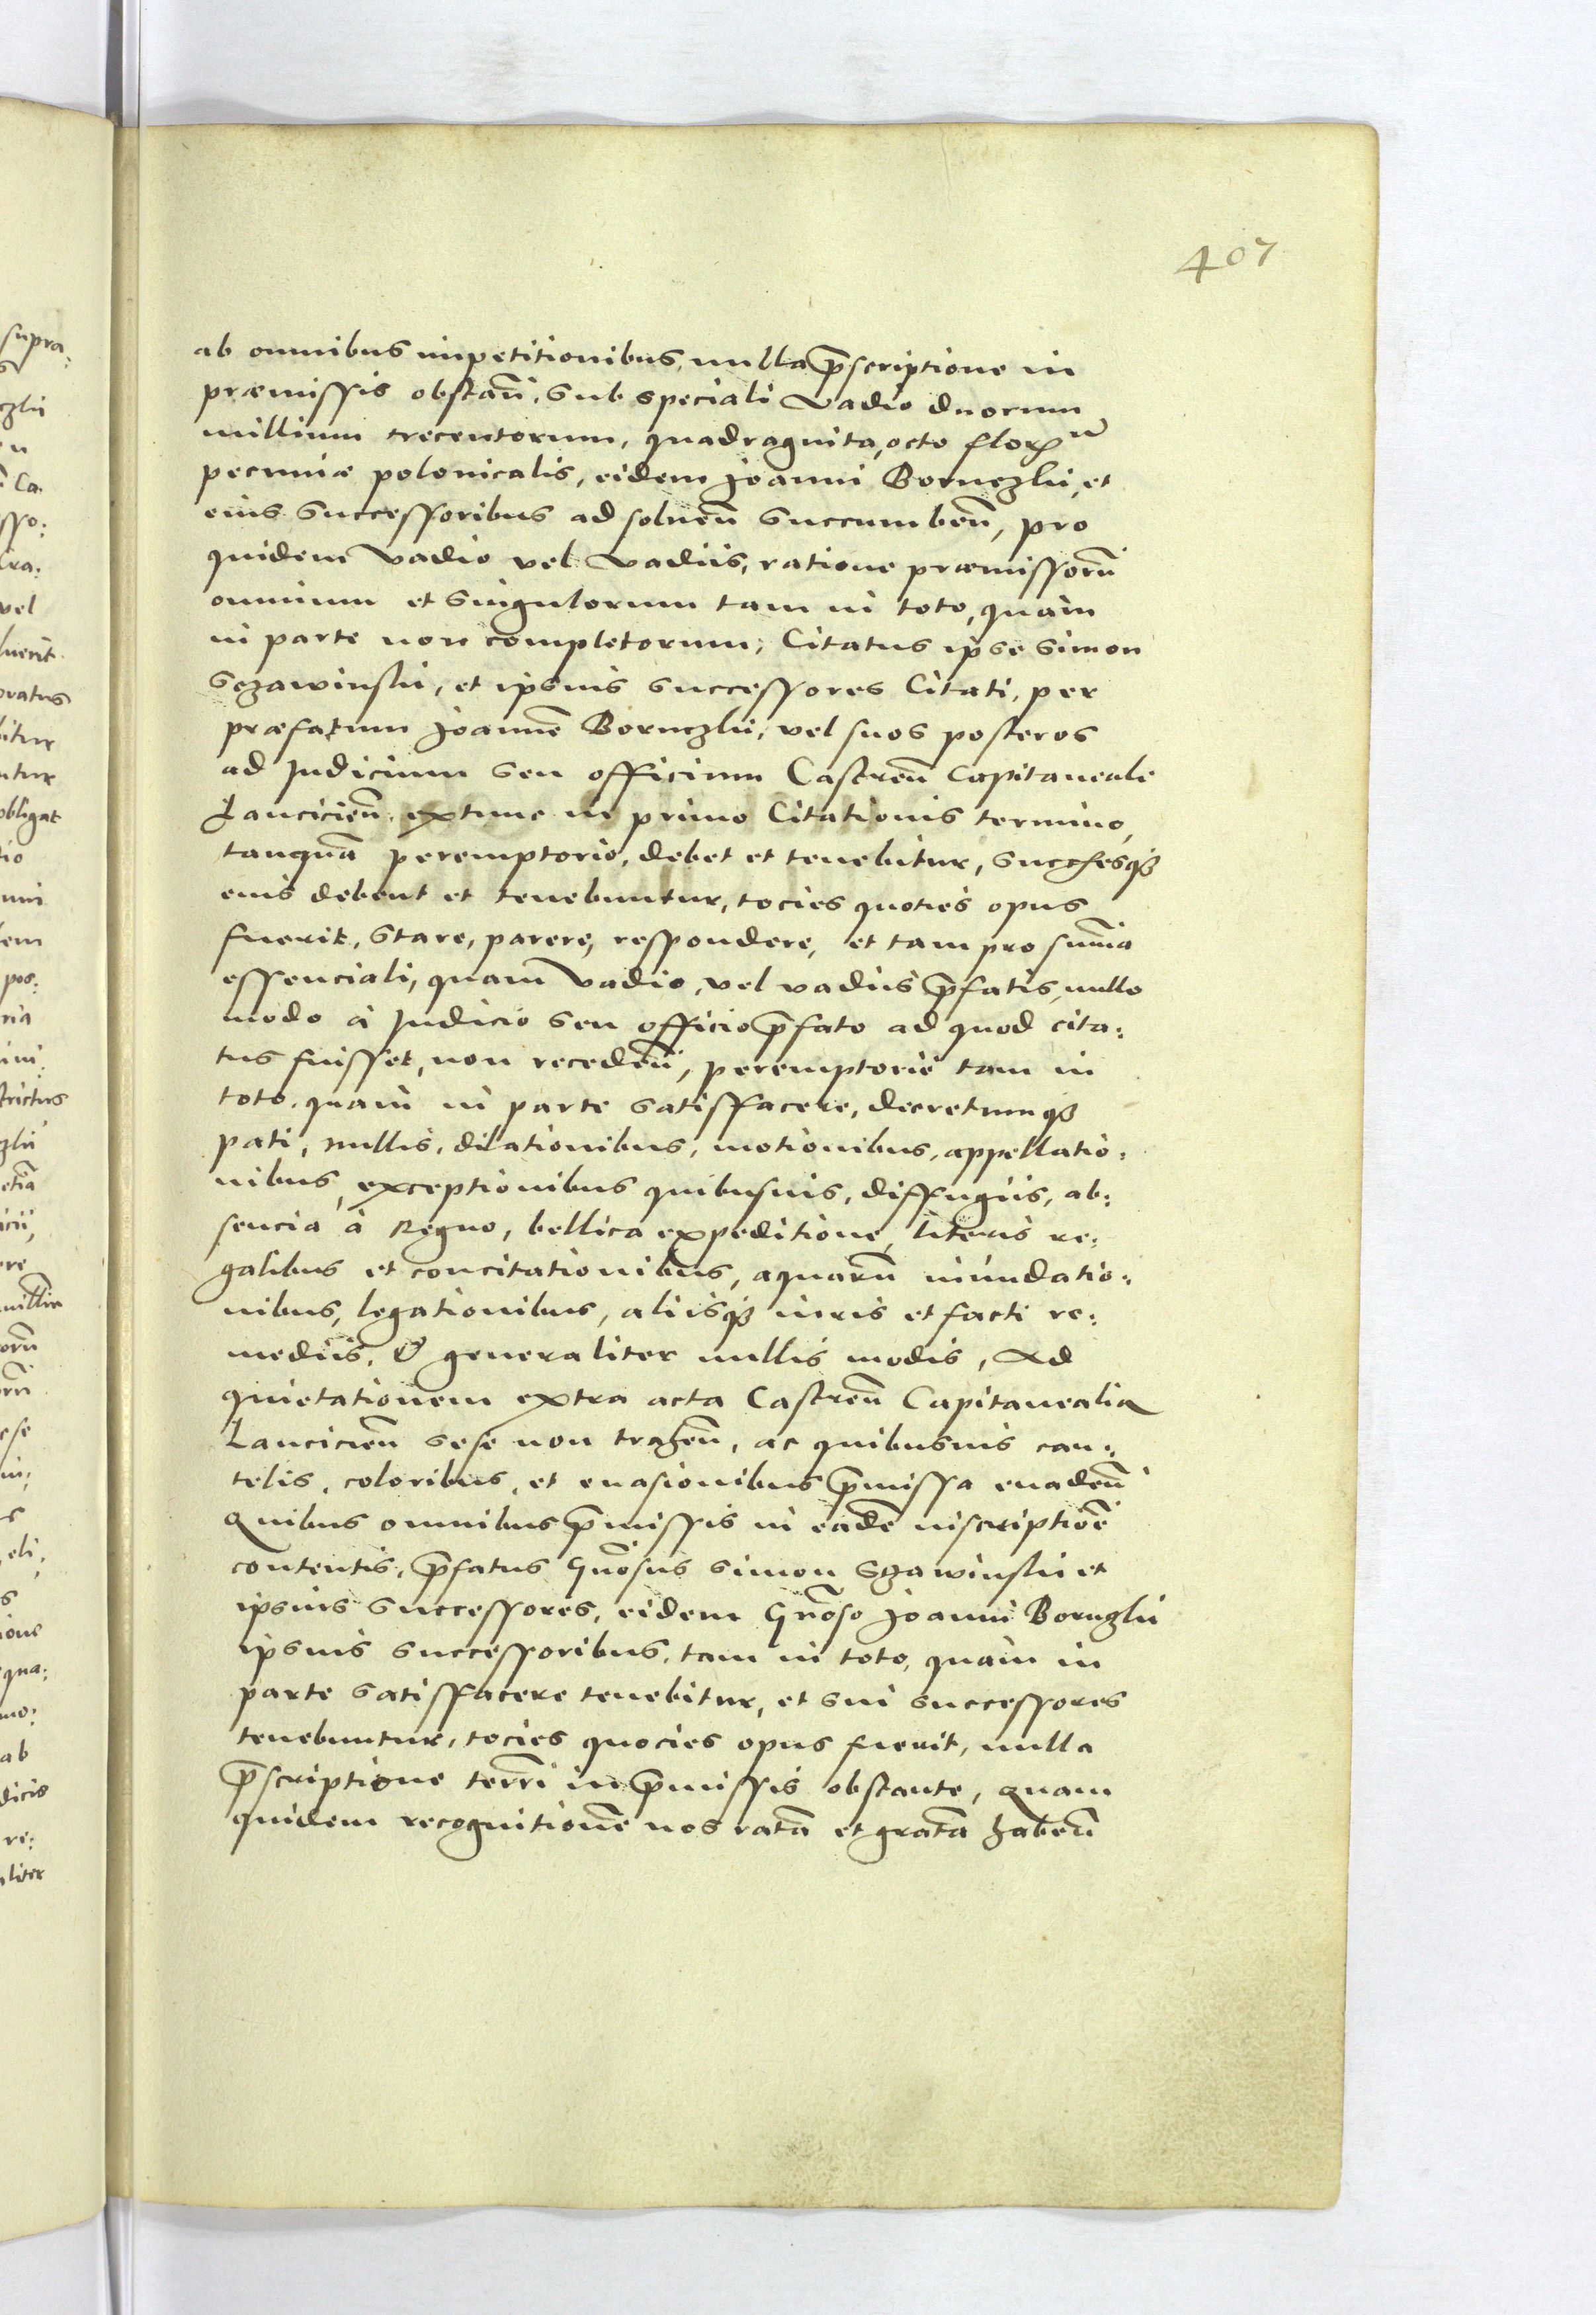 407
ab omnibus impetitionibus, nulla p̄scriptione in
præmissis obstañ, Sub speciali vadio duorum
millium trecentorum, quadraginta, octo flor
pecuniæ polonicalis, eidem Joanni Bornczlii, et
eius Successoribus ad solueñ Succumbeñ, pro
quidem vadio vel vadiis, ratione præmissorū
omnium et Singulorum tam in toto, quàm
in parte non completorum; Citatus ipse Simon
Sczawinskii, et ipsius Successores Citati, per
præfatum Joannē Bornczlii, vel suos posteros
ad Judicium Seu officium Castreñ Capitaneale
Lancicieñ extunc in primo Citationis termino,
tanquā peremptorio, debet et tenebitur, Succsesq₃
eius debent et tenebuntur, tocies quoties opus
fuerit, Stare, parere, respondere, et tam pro sum̄a
essenciali, quam vadio, vel vadiis p̄fatis, nullo
modo à Judicio Seu officio p̄fato ad quod cita:
tus fuisset, non recedeñ, peremptoriè tam in
toto, quàm in parte Satisfacere, decretumq₃
pati, nullis, dilationibus, motionibus, appellatio:
nibus, exceptionibus quibusuis, diffugiis, ab:
sencia à Regno, bellica expeditione, literis re:
galibus et concitationibus, aquarū inundatio:
nibus, legationibus, aliisq₃ iuris et facti re:
mediis, & generaliter nullis modis, Ad
quietationem extra acta Castreñ Capitanealia
Lancicieñ Sese non traheñ, ac quibusuis cau:
telis, coloribus, et euasionibus p̄missa euadeñ
Quibus omnibus p̄missis in eadē inscriptionē
contentis, p̄fatus Gñosus Simon Sczawinskii et
ipsius Successores, eidem Gñoso Joanni Bornczlii
ipsius Successoribus, tam in toto, quàm in
parte Satisfacere tenebitur, et sui Successores
tenebuntur, tocies quocies opus fuerit, nulla
p̄scriptione terrī in p̄missis obstante, Quam
quidem recognitionē nos ratā et gratā habeñ